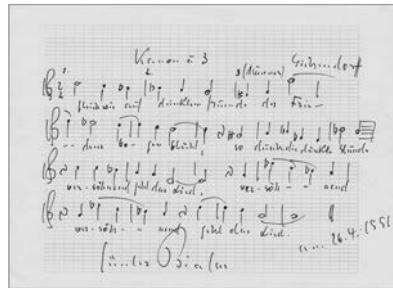 Kanon à 3
Eichendorff
1. 2. 3
Gleich wie auf dunklem Grunde der Frie-
-- dens bo-gen blüht, so durch die dunkle Stunde
ver-söhnend geht das Lied. ver-söh- - nend
ver-söh- - nend geht das Lied.
26.4.1991
Günter Bialas